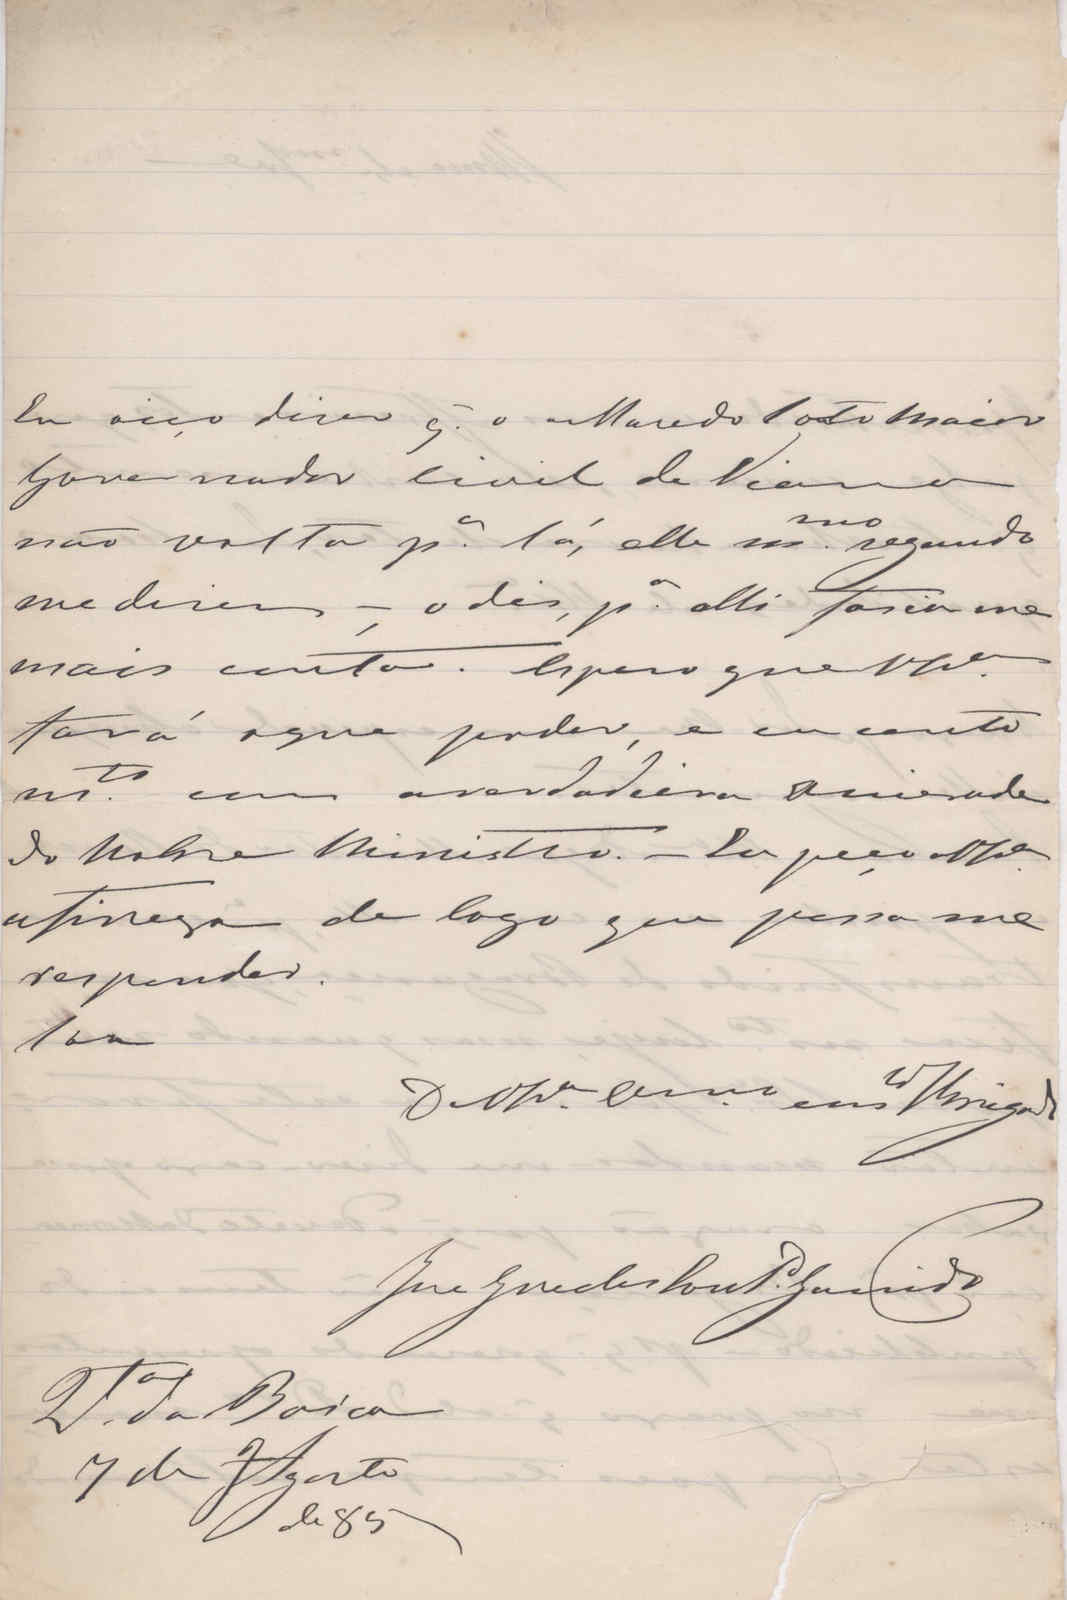 Eu oiço diser q. o Macedo Sotto Maior
Governador Civil de Vianna
não volta p.ª lá, elle m.mo segundo
me disem, – o dis, p.ª alli fasia me
mais conta. Espero que V Ex.ª
fará o que poder, e eu conto
m.to com a verdadeira amisade
do Nobre Ministro. – Eu peço a V Ex.ª
a finesa de logo que possa me
responder.
Sou
De V Ex.ª am.º
José Guedes P.
Q.ta da Boiça
7 de Agosto
de 85